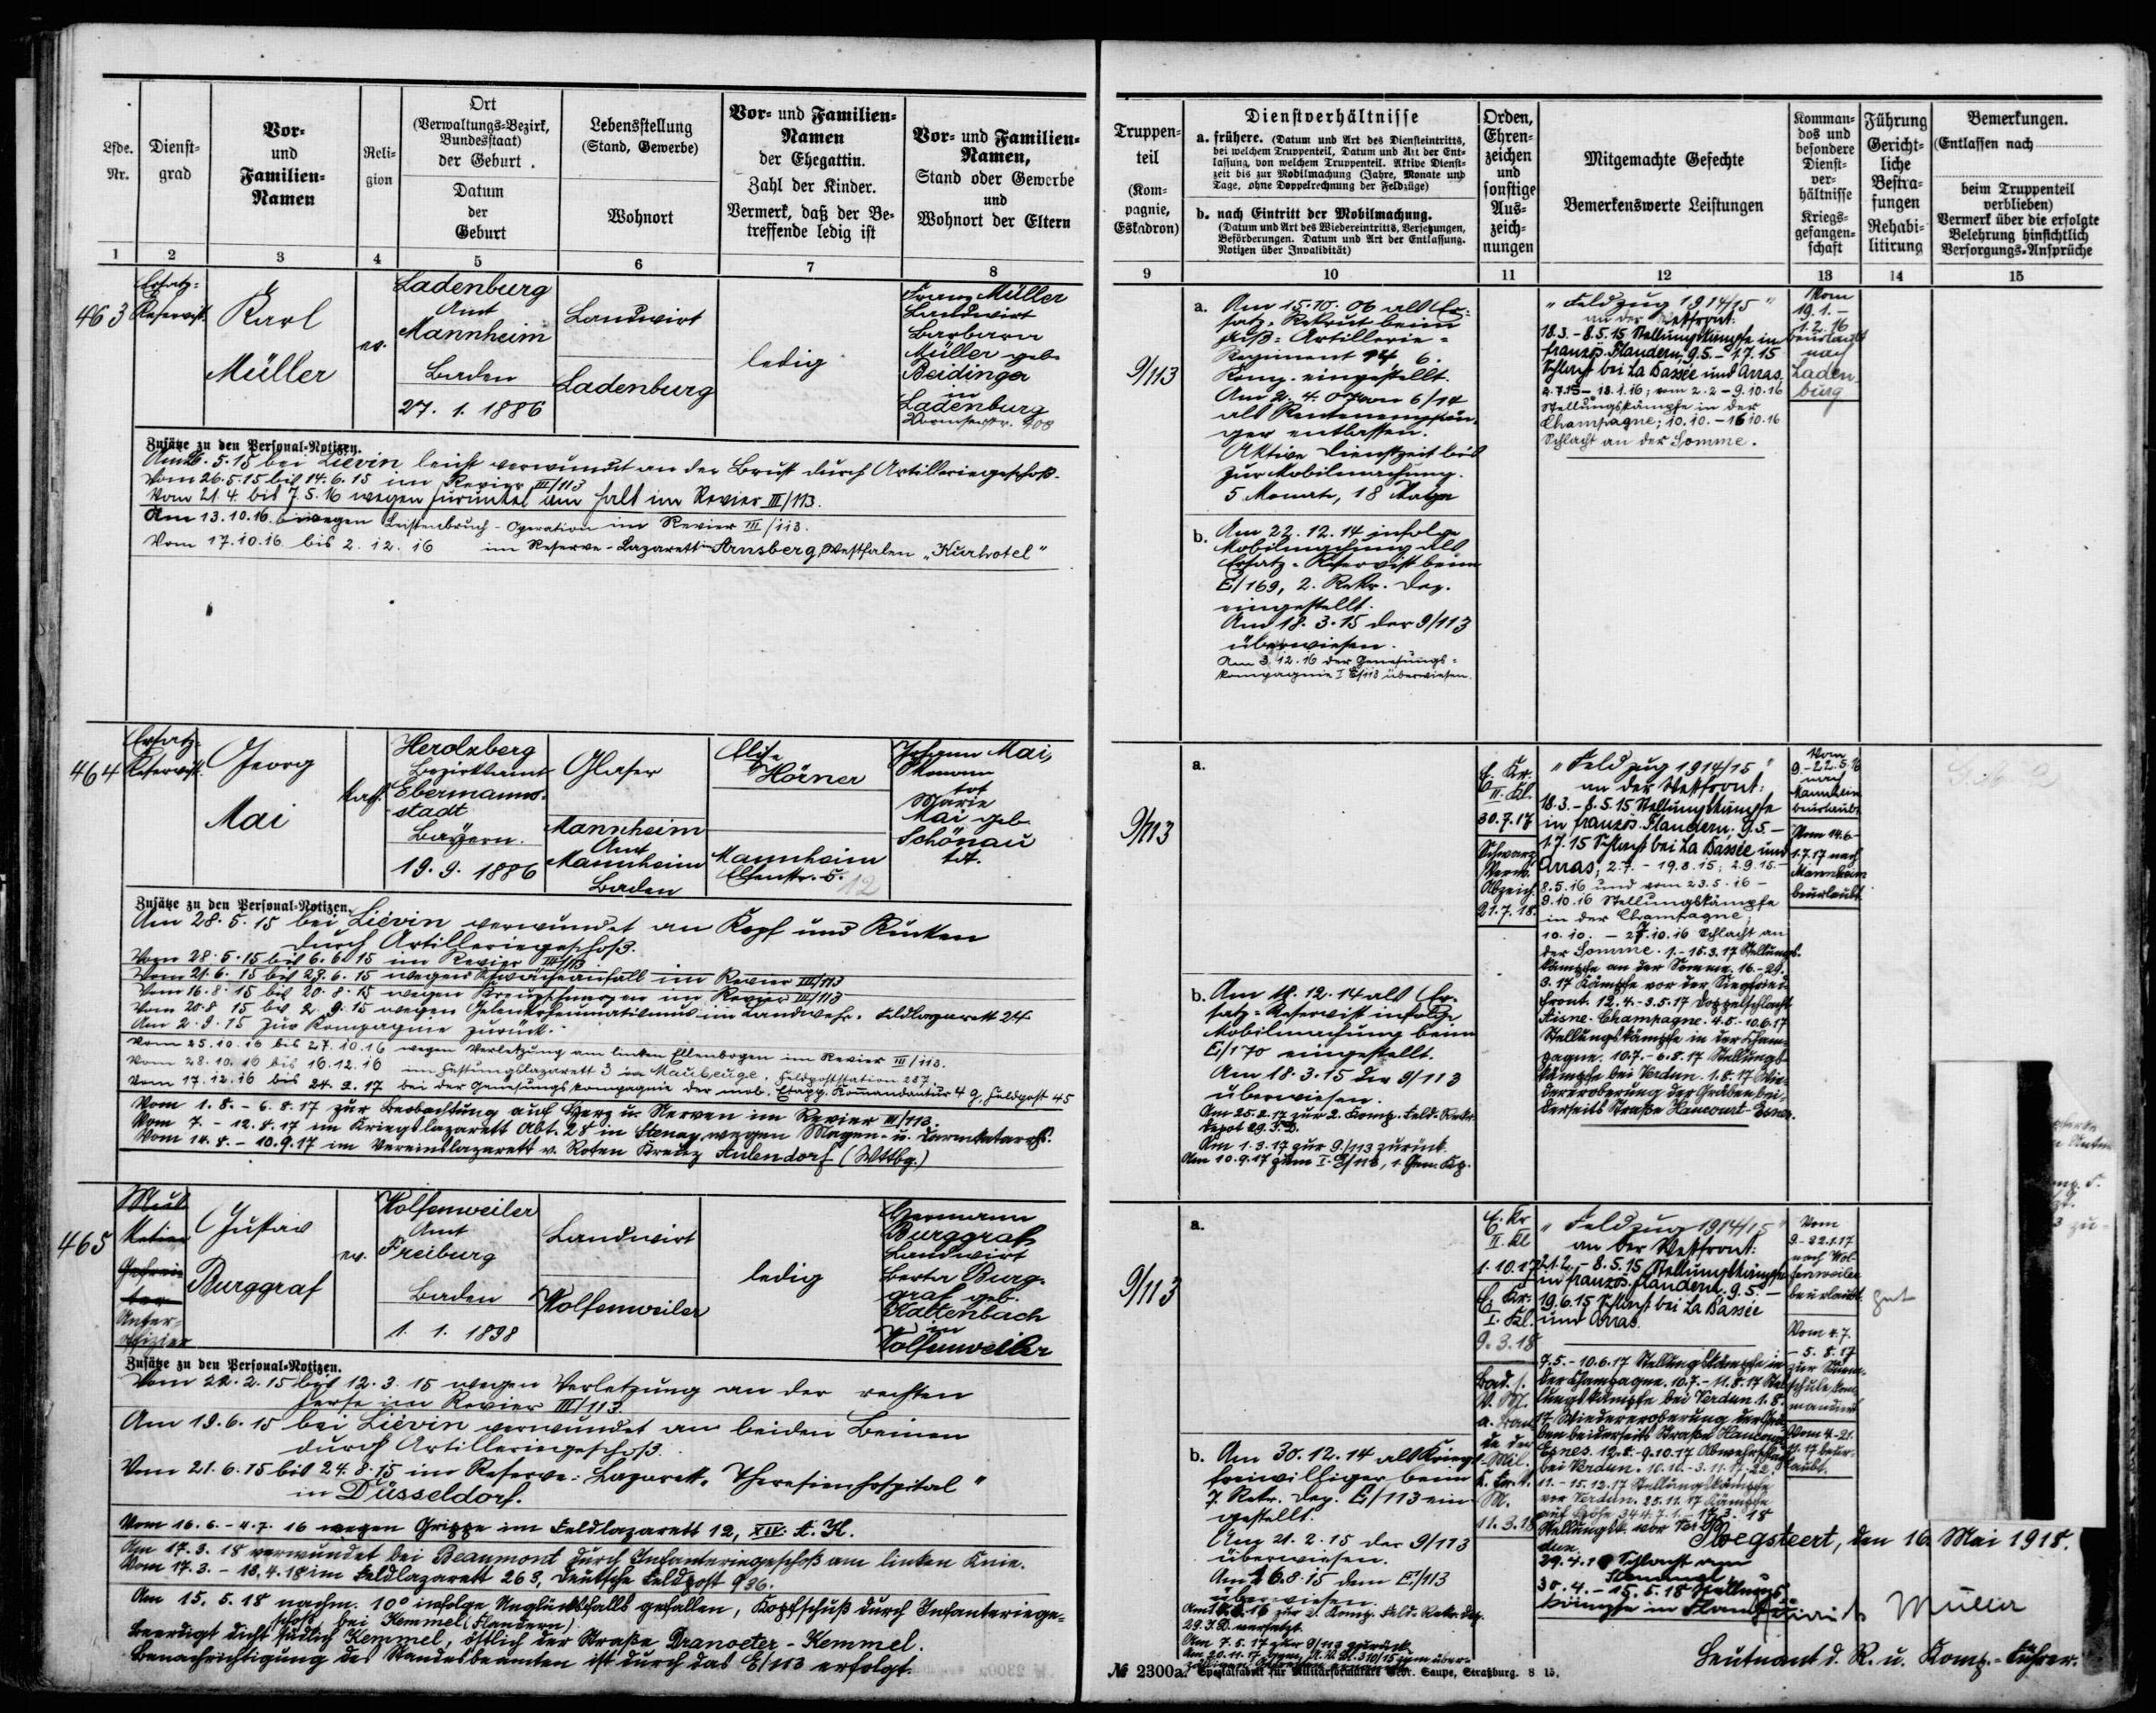 Lfde. Nr.
Dienst-
grad
Vor-
und
Familien-
Namen
Reli-
gion
Ort
(Verwaltungs-Bezirk,
Bundesstaat)
der Geburt.
Datum
der
Geburt
Lebensstellung
(Stand, Gewerbe)
Wohnort
Vor- und Familien-
Namen
der Ehegattin.
Zahl der Kinder.
Vermerk, daß der Be-
treffende ledig ist
Vor- und Familien-
Namen,
Stand oder Gewerbe
und
Wohnort der Eltern
1 2 3 4 5 6 7 8
463
Ersatz-
Reservist.
Karl
Müller
ev.
Ladenburg
Amt
Mannheim
Baden
27. 1. 1886
Landwirt
Ladenburg
ledig
Franz Müller
Landwirt
Barbara
Müller geb.
Beidinger
in
Ladenburg
Zusätze zu den Personal-Notizen.
5.15 bei Liévin leicht verwundet an der Brust durch Artilleriegeschoß.
Vom 26.5.15 bis 14.6.15 im Revier III/113
Vom 21.4. bis 7.5.16 wegen Furunkel am Hals im Revier III/113.
Am 13.10.16 wegen Leistenbruch-Operation im Revier III/113.
Vom 17.10.16 bis 2.12.16 im Reserve-Lazarett Arnsberg, Westfalen „Kurhotel"
464
Ersatz-
Reservist.
Georg
Mai
kath.
Herolzberg
Bezirksamt
Ebermann-
stadt
Bayern.
19. 9. 1886
Glaser
Mannheim
Amt
Mannheim
Baden
Elise
Hörner
Mannheim
12
Johann Mai,
tot
Marie
Mai geb.
Schönau
tot.
Zusätze zu den Personal-Notizen.
Am 28.5.15 bei Liévin verwundet an Kopf und Rücken
durch Artilleriegeschoß.
Vom 28.5.15 bis 6.6.15 im Revier III/113
Vom 21.6.15 bis 23.6.15 wegen Schwächeanfall im Revier III/113
Vom 16.8.15 bis 20.8.15 wegen Kreuzschmerzen im Revier III/113
Vom 20.8.15 bis 2.9.15 wegen Gelenkrheumatismus im Landwehr-Feldlazarett 24
Am 2.9.15 zur Kompagnie zurück.
Vom 25.10.16 bis 27.10.16 wegen Verletzung am linken Ellenbogen im Revier III/113.
Vom 28.10.16 bis 16.12.16 im Festungslazarett 3 in Maubeuge, Feldpoststation 287.
Vom 17.12.16 bis 24.2.17 bei der Genesungskompagnie der mob. Etapp. Kommandantur 4 G, Feldpost 45
Vom 1.8. - 6.8.17 zur Beobachtung auf Herz u. Nerven im Revier III/113.
Vom 7. - 12.8.17 im Kriegslazarett Abt. 28 in Stenay wegen Magen- u. Darmkatarrh.
Vom 14.8. - 10.9.17 im Vereinslazarett v. Roten Kreuz Aulendorf (Wttbg.)
465
Gefrei-
ter
Unter-
offizier
Gustav
Burggraf
ev.
Wolfenweiler
Amt
Freiburg
Baden
1. 1. 1898
Landwirt
Wolfenweiler
ledig
Hermann
Burggraf
Landwirt
Berta Burg-
graf geb.
Kaltenbach
in
Wolfenweiler
Zusätze zu den Personal-Notizen.
Vom 22.2.15 bis 12.3.15 wegen Verletzung an der rechten
Ferse im Revier III/113.
Am 19.6.15 bei Liévin verwundet an beiden Beinen
durch Artilleriegeschoß.
Vom 21.6.15 bis 24.8.15 im Reserve-Lazarett „Theresienhospital"
in Düsseldorf.
Vom 16.6. - 4.7.16 wegen Grippe im Feldlazarett 12, XIV. A. K.
Am 17.3.18 verwundet bei Beaumont durch Infanteriegeschoß am linken Knie.
Vom 17.3. - 18.4.18 im Feldlazarett 263, Deutsche Feldpost 936.
Am 15.5.18 nachm. 10° infolge Unglücksfalls gefallen, Kopfschuß durch Infanteriege-
schoß, bei Kemmel (Flandern)
Beerdigt dicht südlich Kemmel, östlich der Straße Dranoeter - Kemmel.
Benachrichtigung des Standesbeamten ist durch das E/113 erfolgt.
Truppen-
teil
(Kom-
pagnie,
Eskadron)
Dienstverhältnisse
a. frühere. (Datum und Art des Diensteintritts,
bei welchem Truppenteil, Datum und Art der Ent-
lassung, von welchem Truppenteil. Aktive Dienst-
zeit bis zur Mobilmachung (Jahre, Monate und
Tage, ohne Doppelrechnung der Feldzüge)
b. nach Eintritt der Mobilmachung.
(Datum und Art des Wiedereintritts, Versetzungen,
Beförderungen. Datum und Art der Entlassung.
Notizen über Invalidität)
Orden,
Ehren-
zeichen
und
sonstige
Aus-
zeich-
nungen
Mitgemachte Gefechte
Bemerkenswerte Leistungen
Komman-
dos und
besondere
Dienst-
ver-
hältnisse
Kriegs-
gefangen-
schaft
Führung
Gericht-
liche
Bestra-
fungen
Rehabi-
litirung
Bemerkungen.
(Entlassen nach
beim Truppenteil
verblieben)
Vermerk über die erfolgte
Belehrung hinsichtlich
Versorgungs-Ansprüche
9 10 11 12 13 14 15
9/113
a. Am 15.10.06 als Er-
satz-Rekrut beim
Fuß-Artillerie-
Regiment 14 6.
Komp. eingestellt.
als Rentenempfän-
ger entlassen.
Aktive Dienstzeit bis
zur Mobilmachung.
5 Monate, 18 Tage
b. Am 22.12.14 infolge
Mobilmachung als
Ersatz-Reservist beim
E/169, 2. Rekr. Dep.
eingestellt.
Am 18.3.15 der 9/113
überwiesen.
Am 3.12.16 der Genesungs-
kompagnie I E/113 überwiesen.
„Feldzug 1914/15"
an der Westfront:
18.3. - 8.5.15 Stellungskämpfe in
französ. Flandern, 9.5. - 1.7.15
Schlacht bei La Bassée und Arras,
2.7.15 - 18.1.16; vom 2.2 - 9.10.16
Stellungskämpfe in der
Champagne; 10.10. - 16.10.16
Schlacht an der Somme.
Vom
19.1. -
1.2.16
beurlaubt
nach
Laden-
burg
9/113
a.
b. Am 18.12.14 als Er-
satz-Reservist infolge
Mobilmachung beim
E/170 eingestellt.
Am 18.3.15 der 9/113
überwiesen.
Am 25.2.17 zur 2. Komp. Feld-Rekr.
Depot 29. J.D.
Am 1.3.17 zur 9/113 zurück.
Am 10.9.17 zum I. E/113, 1. Gen. Kp.
E. Kr.
II. Kl.
30.7.17
Schwarz.
Verw.
Abzeich.
21.7.18.
„Feldzug 1914/15"
an der Westfront:
18.3. - 8.5.15 Stellungskämpfe
in französ. Flandern; 9.5. -
1.7.15 Schlacht bei La Bassée und
Arras; 2.7. - 19.8.15; 2.9.15 -
8.5.16 und vom 23.5.16 -
9.10.16 Stellungskämpfe
in der Champagne;
10.10. - 27.10.16 Schlacht an
der Somme. 1. - 15.3.17 Stellungs-
kämpfe an der Somme. 16. - 29.
3.17 Kämpfe vor der Siegfried-
front. 12.4. - 3.5.17 Doppelschlacht
Aisne-Champagne. 4.5. - 10.6.17
Stellungskämpfe in der Cham-
pagne. 10.7. - 6.8.17 Stellungs-
kämpfe bei Verdun. 1.8.17 Wie-
dereroberung der Gräben bei-
derseits Straße Haucourt-Esnes.
Vom
9. - 22.5.16
nach
Mannheim
beurlaubt.
Vom 14.6. -
1.7.17 nach
Mannheim
beurlaubt.
9/113
a.
b. Am 30.12.14 als Kriegs-
freiwilliger beim
7. Rekr. Dep. E/113 ein-
gestellt.
Am 21.2.15 der 9/113
überwiesen.
Am 26.8.15 dem E/113
überwiesen.
29. J.D. versetzt.
Am 7.5.17 zur 9/113 zurück.
E. Kr.
II. Kl.
1.10.17
E. Kr.
I. Kl.
9.3.18
11.3.18
„Feldzug 1914/15"
an der Westfront:
21.2. - 8.5.15 Stellungskämpfe
in französ. Flandern, 9.5. -
19.6.15 Schlacht bei La Bassée
und Arras.
7.5. - 10.6.17 Stellungskämpfe in
der Champagne. 10.7. - 11.8.17 Stel-
lungskämpfe bei Verdun. 1.8.
17 Wiedereroberung der Grä-
ben beiderseits Straße Haucourt
Esnes. 12.8. - 9.10.17 Abwehrschlacht
bei Verdun.
11. - 15.12.17 Stellungskämpfe
vor Verdun. 25.11.17 Kämpfe
auf Höhe 344.
Stellungsk. vor Ver-
dun.
Schlacht am
Kemmel
30.4. - 15.5.18 Stellungs-
kämpfe in
Vom
9. - 22.1.17
nach Wol-
fenweiler
beurlaubt.
Vom 4.7.
- 5.8.17
zur Sturm-
schule kom-
mandiert
Vom 4. - 21.
11.17 beur-
laubt.
gut
Ploegsteert, den 16. Mai 1918.
Müller
Leutnant d. R. u. Komp.-Führer.
№ 2300a. Spezialfabrik für Militärformulare Gebr. Saupe, Straßburg. 8 15.